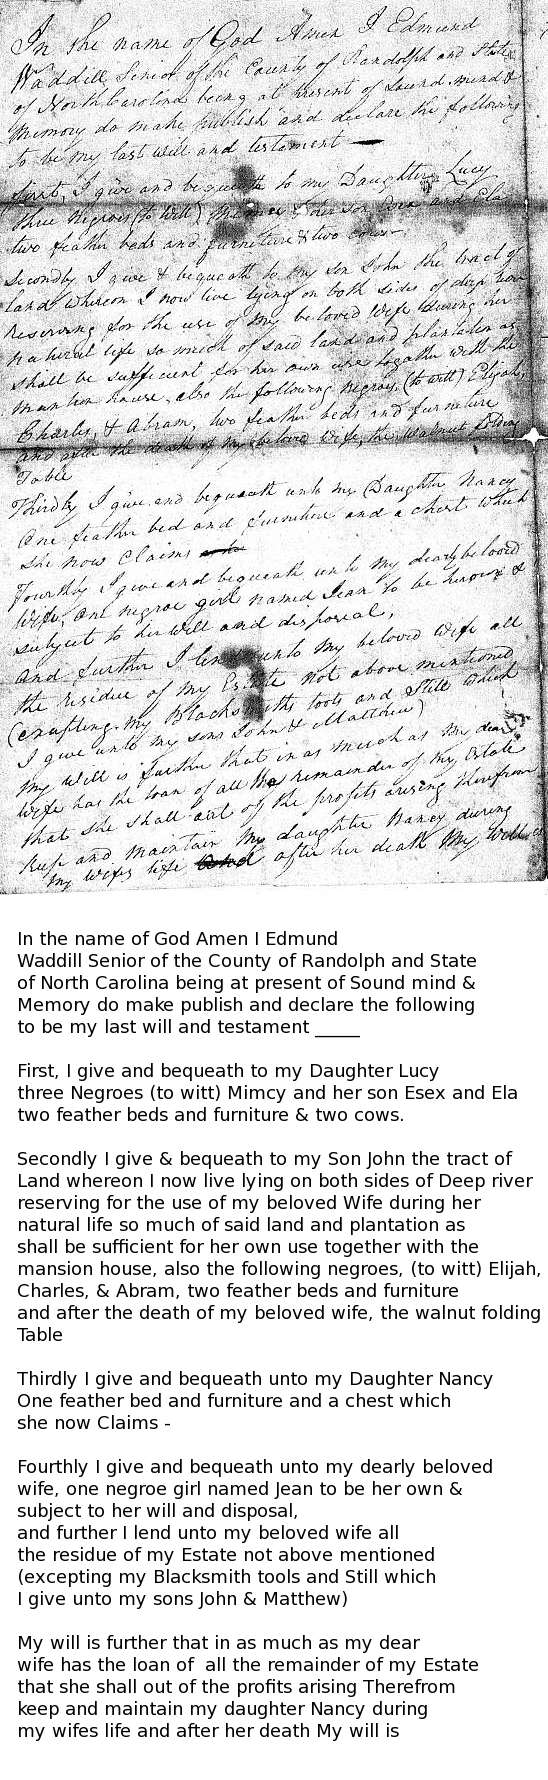 In the name of God Amen I Edmund
Waddill Senior of the County of Randolph and State
of North Carolina being at present of Sound mind &
Memory do make publish and declare the following
to be my last will and testament
First, I give and bequeath to my Daughter Lucy
three Negroes (to witt) her son and Ela
two feather beds and furneture & two cows
Secondly I give & bequeath to my son John the tract of
land whereon I now live lying on both sides of deep river
reserving for the use of my beloved wife during her
natural life so much of said land and plantation as
shall be sufficient for her own use together with the
mantion house, also the following negroes, (to witt) Elijah,
Charles, & Abram, two feather beds and furneture
and after the death of my beloved wife, the walnut folding
Table
Thirdly I give and bequeath unto my Daughter Nancy
One feather bed and furneture and a chest which
she now Claims
Fourthly I give and bequeath unto my dearly beloved
wife, one negroe girl named Jean to be her own &
subject to her will and disposal,
and further I lend unto my beloved wife all
the residue of my Estate not above mentioned
(excepting my Blacksmiths tools and Still which
I give unto my sons John & Matthew)
My will is further that in as much as my dear
wife has the loan of all the remainder of my Estate
that she shall out of the profits arising therefrom
keep and maintain my daughter Nancy during
my wifes life and after her death My will is
In the name of God Amen I Edmund
Waddill Senior of the County of Randolph and State
of North Carolina being at present of Sound mind &
Memory do make publish and declare the following
to be my last will and testament _____
First, I give and bequeath to my Daughter Lucy
three Negroes (to witt) Mimcy and her son Esex and Ela
two feather beds and furniture & two cows.
Secondly I give & bequeath to my Son John the tract of
Land whereon I now live lying on both sides of Deep river
reserving for the use of my beloved Wife during her
natural life so much of said land and plantation as
shall be sufficient for her own use together with the
mansion house, also the following negroes, (to witt) Elijah,
Charles, & Abram, two feather beds and furniture
and after the death of my beloved wife, the walnut folding
Table
Thirdly I give and bequeath unto my Daughter Nancy
One feather bed and furniture and a chest which
she now Claims -
Fourthly I give and bequeath unto my dearly beloved
wife, one negroe girl named Jean to be her own &
subject to her will and disposal,
and further I lend unto my beloved wife all
the residue of my Estate not above mentioned
(excepting my Blacksmith tools and Still which
I give unto my sons John & Matthew)
My will is further that in as much as my dear
wife has the loan of all the remainder of my Estate
that she shall out of the profits arising Therefrom
keep and maintain my daughter Nancy during
my wifes life and after her death My will is